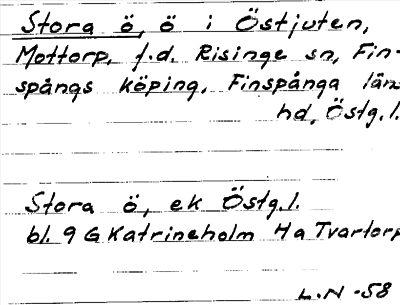 Stora ö, ö i Östjuten,
Mottorp, f.d. Risinge sn, Fin-
spångs köping, Finspånga läns
hd, Östg.l.
Stora ö, ek Östg.l.
bl. 9 G Katrineholm 4a Tvartorp
L.N -58